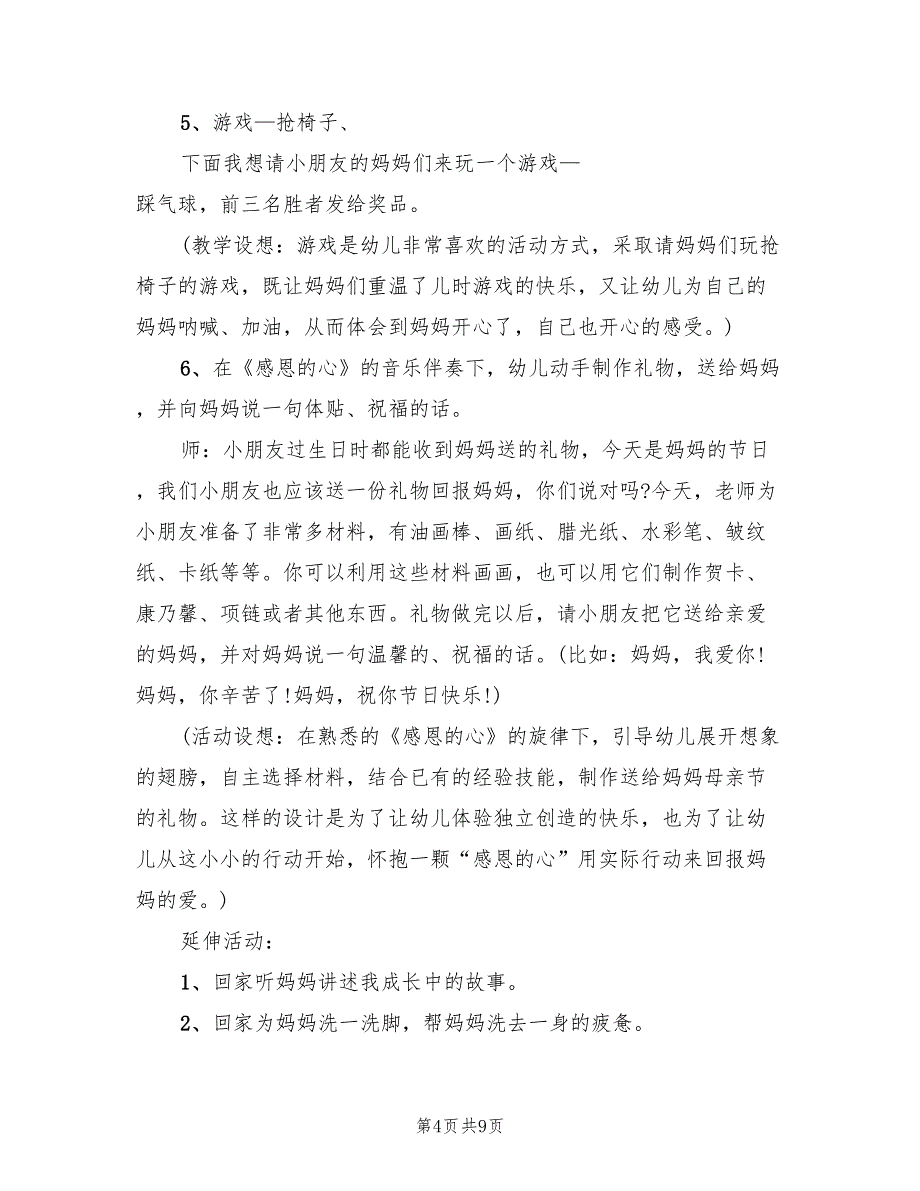 5、游戏—抢椅子、
下面我想请小朋友的妈妈们来玩一个游戏—
踩气球，前三名胜者发给奖品。
(教学设想：游戏是幼儿非常喜欢的活动方式，采取请妈妈们玩抢
椅子的游戏，既让妈妈们重温了儿时游戏的快乐，又让幼儿为自己的
妈妈呐喊、加油，从而体会到妈妈开心了，自己也开心的感受。)
6、在《感恩的心》的音乐伴奏下，幼儿动手制作礼物，送给妈妈
，并向妈妈说一句体贴、祝福的话。
师：小朋友过生日时都能收到妈妈送的礼物，今天是妈妈的节日
，我们小朋友也应该送一份礼物回报妈妈，你们说对吗?今天，老师为
小朋友准备了非常多材料，有油画棒、画纸、腊光纸、水彩笔、皱纹
纸、卡纸等等。你可以利用这些材料画画，也可以用它们制作贺卡、
康乃馨、项链或者其他东西。礼物做完以后，请小朋友把它送给亲爱
的妈妈，并对妈妈说一句温馨的、祝福的话。(比如：妈妈，我爱你!
妈妈，你辛苦了!妈妈，祝你节日快乐!)
(活动设想：在熟悉的《感恩的心》的旋律下，引导幼儿展开想象
的翅膀，自主选择材料，结合已有的经验技能，制作送给妈妈母亲节
的礼物。这样的设计是为了让幼儿体验独立创造的快乐，也为了让幼
儿从这小小的行动开始，怀抱一颗“感恩的心”用实际行动来回报妈
妈的爱。)
延伸活动：
1、回家听妈妈讲述我成长中的故事。
2、回家为妈妈洗一洗脚，帮妈妈洗去一身的疲惫。
第4页共9页